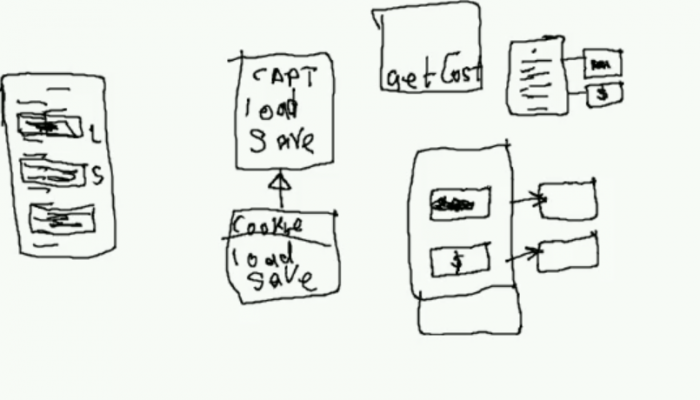 L
S
CAPT
load
Save
Cookie
load
Save
getCost
$
$